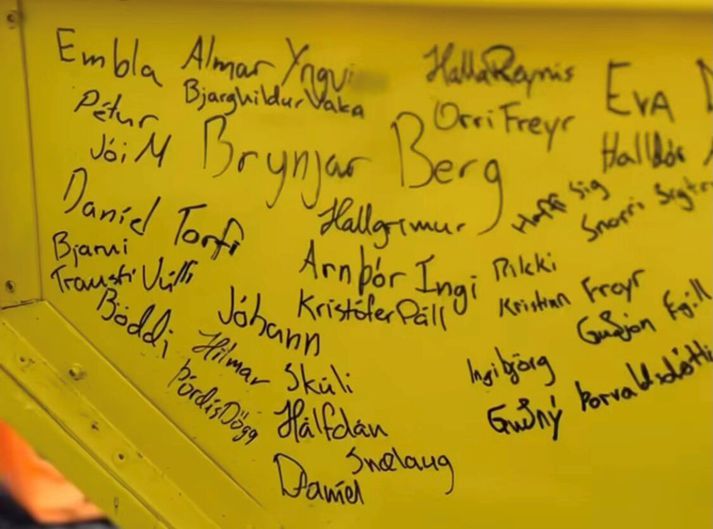 Embla
Almar Yngvi
Halla Reynis
Eva
Pétur
Bjarghildur Vaka
Orri Freyr
Jói M
Brynjar Berg
Halldór
Daníel Torfi
Hallgrímur
Haffi Sig
Snorri
Bjarni
Arnþór Ingi
Rikki
Trausti
Kristófer Páll
Kristinn Freyr
Böddi
Jóhann
Guðjón
Hilmar
Skúli
Ingibjörg
Þórdís Dögg
Hálfdán
Guðný Þorvaldsdótti
Snælaug
Daníel